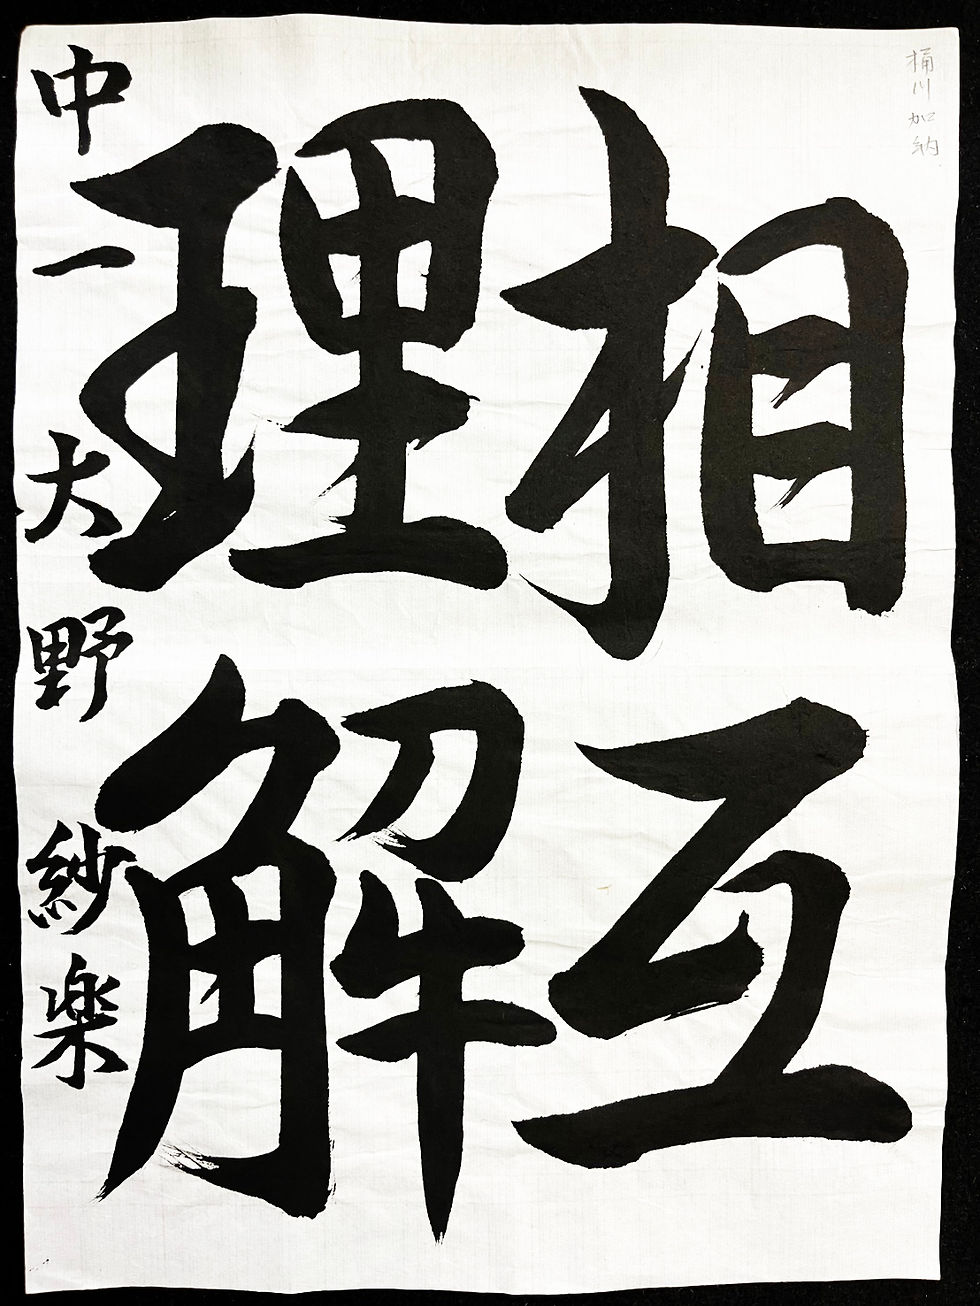 桶川 加納
相互
理解
中一 大野紗楽